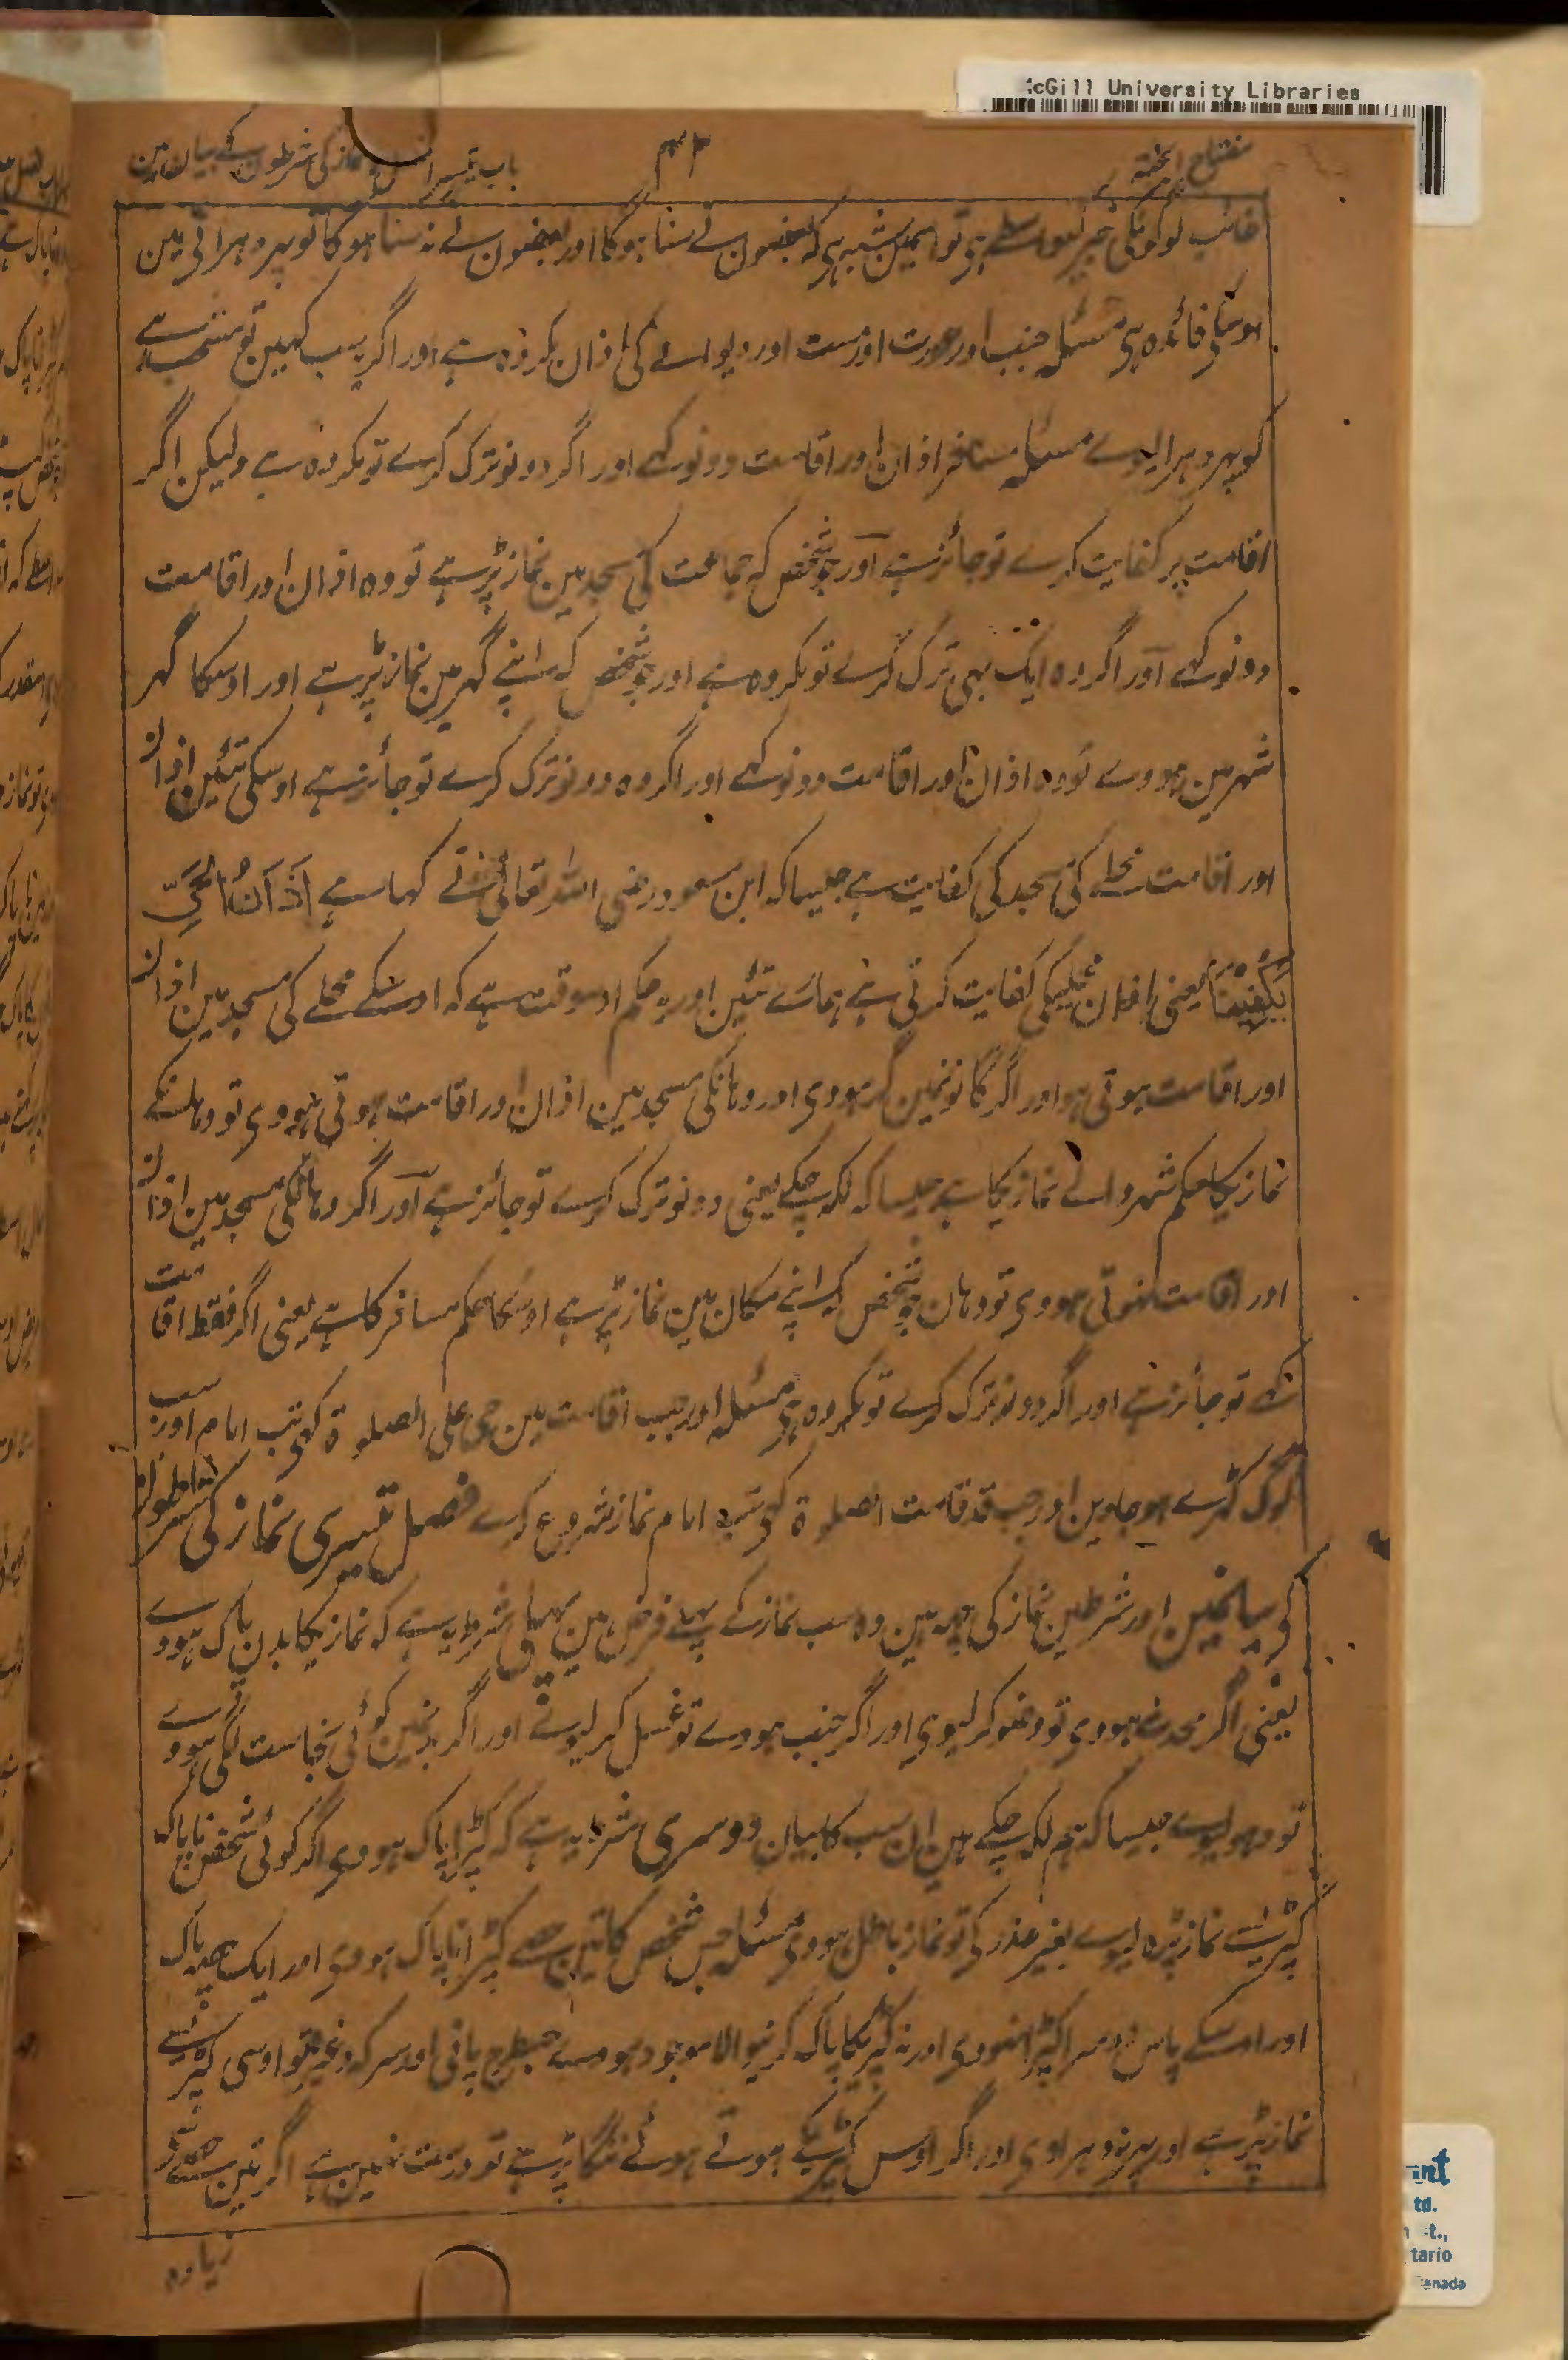 McGill University Libraries
مفتاح الجنۃ
۴۳
باب تیسرا نماز کی شرطون کے بیان مین
غائب لوگونکی خبر کیواسطے ہی تو اسمین شبہ ہی کہ بعضون نے سنا ہوگا اور بعضون نے نہ سنا ہوگا تو پہر دہرانی مین
اوسکی فائدہ ہی مسئلہ جنب اور عورت اور مست اور دیوانے کی اذان مکروہ ہے اور اگر یہ سب کہین تو مستحب ہے
کہ پہر دہرایوے مسئلہ مسافر اذان اور اقامت دونو کہے اور اگر دونو ترک کرے تو مکروہ ہے ولیکن اگر
اقامت پر کفایت کرے تو جائز ہے اور جو شخص کہ جماعت کی مسجد مین نماز پڑہے تو وہ اذان اور اقامت
دونو کہے اور اگر وہ ایک بہی ترک کرے تو مکروہ ہے اور جو شخص کہ اپنے گہر مین نماز پڑہے اور اوسکا گہر
شہر مین ہووے تو وہ اذان اور اقامت دونو کہے اور اگر وہ دونو ترک کرے تو جائز ہے اوسکی تئین اذان
اور اقامت محلے کی مسجد کی کفایت ہے جیسا کہ ابن مسعود رضی اللہ تعالی عنہ نے کہا ہے اَذَانُ الحَیِّ
یَکْفِیْنَا یعنی اذان محلیکی کفایت کرتی ہے ہمارے تئین اور یہ حکم اوسوقت ہے کہ اوسکے محلے کی مسجد مین اذان
اور اقامت ہوتی ہو اور اگر گانو نمین گہر ہووی اور وہانکی مسجد مین اذان اور اقامت ہوتی ہووی تو وہانکے
نمازیکا حکم شہر والے نمازیکا ہے جیسا کہ لکہ چکے یعنی دونو ترک کرے تو جائز ہے اور اگر وہانکی مسجد مین اذان
اور اقامت نہوتی ہووی تو وہان جو شخص کہ اپنے مکان مین نماز پڑہے اوسکا حکم مسافر کا ہے یعنی اگر فقط اقامت
کہے تو جائز ہے اور اگر دونو ترک کرے تو مکروہ ہی مسئلہ اور جب اقامت مین حی علی الصلوۃ کہی تب امام اور سب
لوگ کہڑے ہو جاوین اور جب قد قامت الصلوۃ کہی تب امام نماز شروع کرے فصل تیسری نماز کی شرطون
کی بیانمین اور شرطین نماز کی چہ ہین وہ سب نماز کے پہلے فرض ہین پہلی شرط یہ ہے کہ نمازیکا بدن پاک ہووے
یعنی اگر محدث ہووی تو وضو کر لیوی اور اگر جنب ہووے تو غسل کر لیوے اور اگر بدنمین کوئی نجاست لگی ہووے
تو دہو لیوے جیسا کہ ہم لکہ چکے ہین ان سب کا بیان دوسری شرط یہ ہے کہ کپڑا پاک ہووی اگر کوئی شخص ناپاک
کپڑیسے نماز پڑہ لیوے بغیر عذر کی تو نماز باطل ہووی مسئلہ جس شخص کا تین حصے کپڑا ناپاک ہووی اور ایک حصہ پاک
اور اوسکے پاس دوسرا کپڑا نہووی اور نہ کپڑیکا پاک کرنیوالا موجود ہووے جسطرح پانی اور سرکہ وغیرہ تو اوسی کپڑیسے
نماز پڑہے اور پہر نہ دہراوی اور اگر اوس کپڑیکے ہوتے ہوئے ننگا پڑہے تو درست نہین ہے اگر تین حصے سے
زیادہ